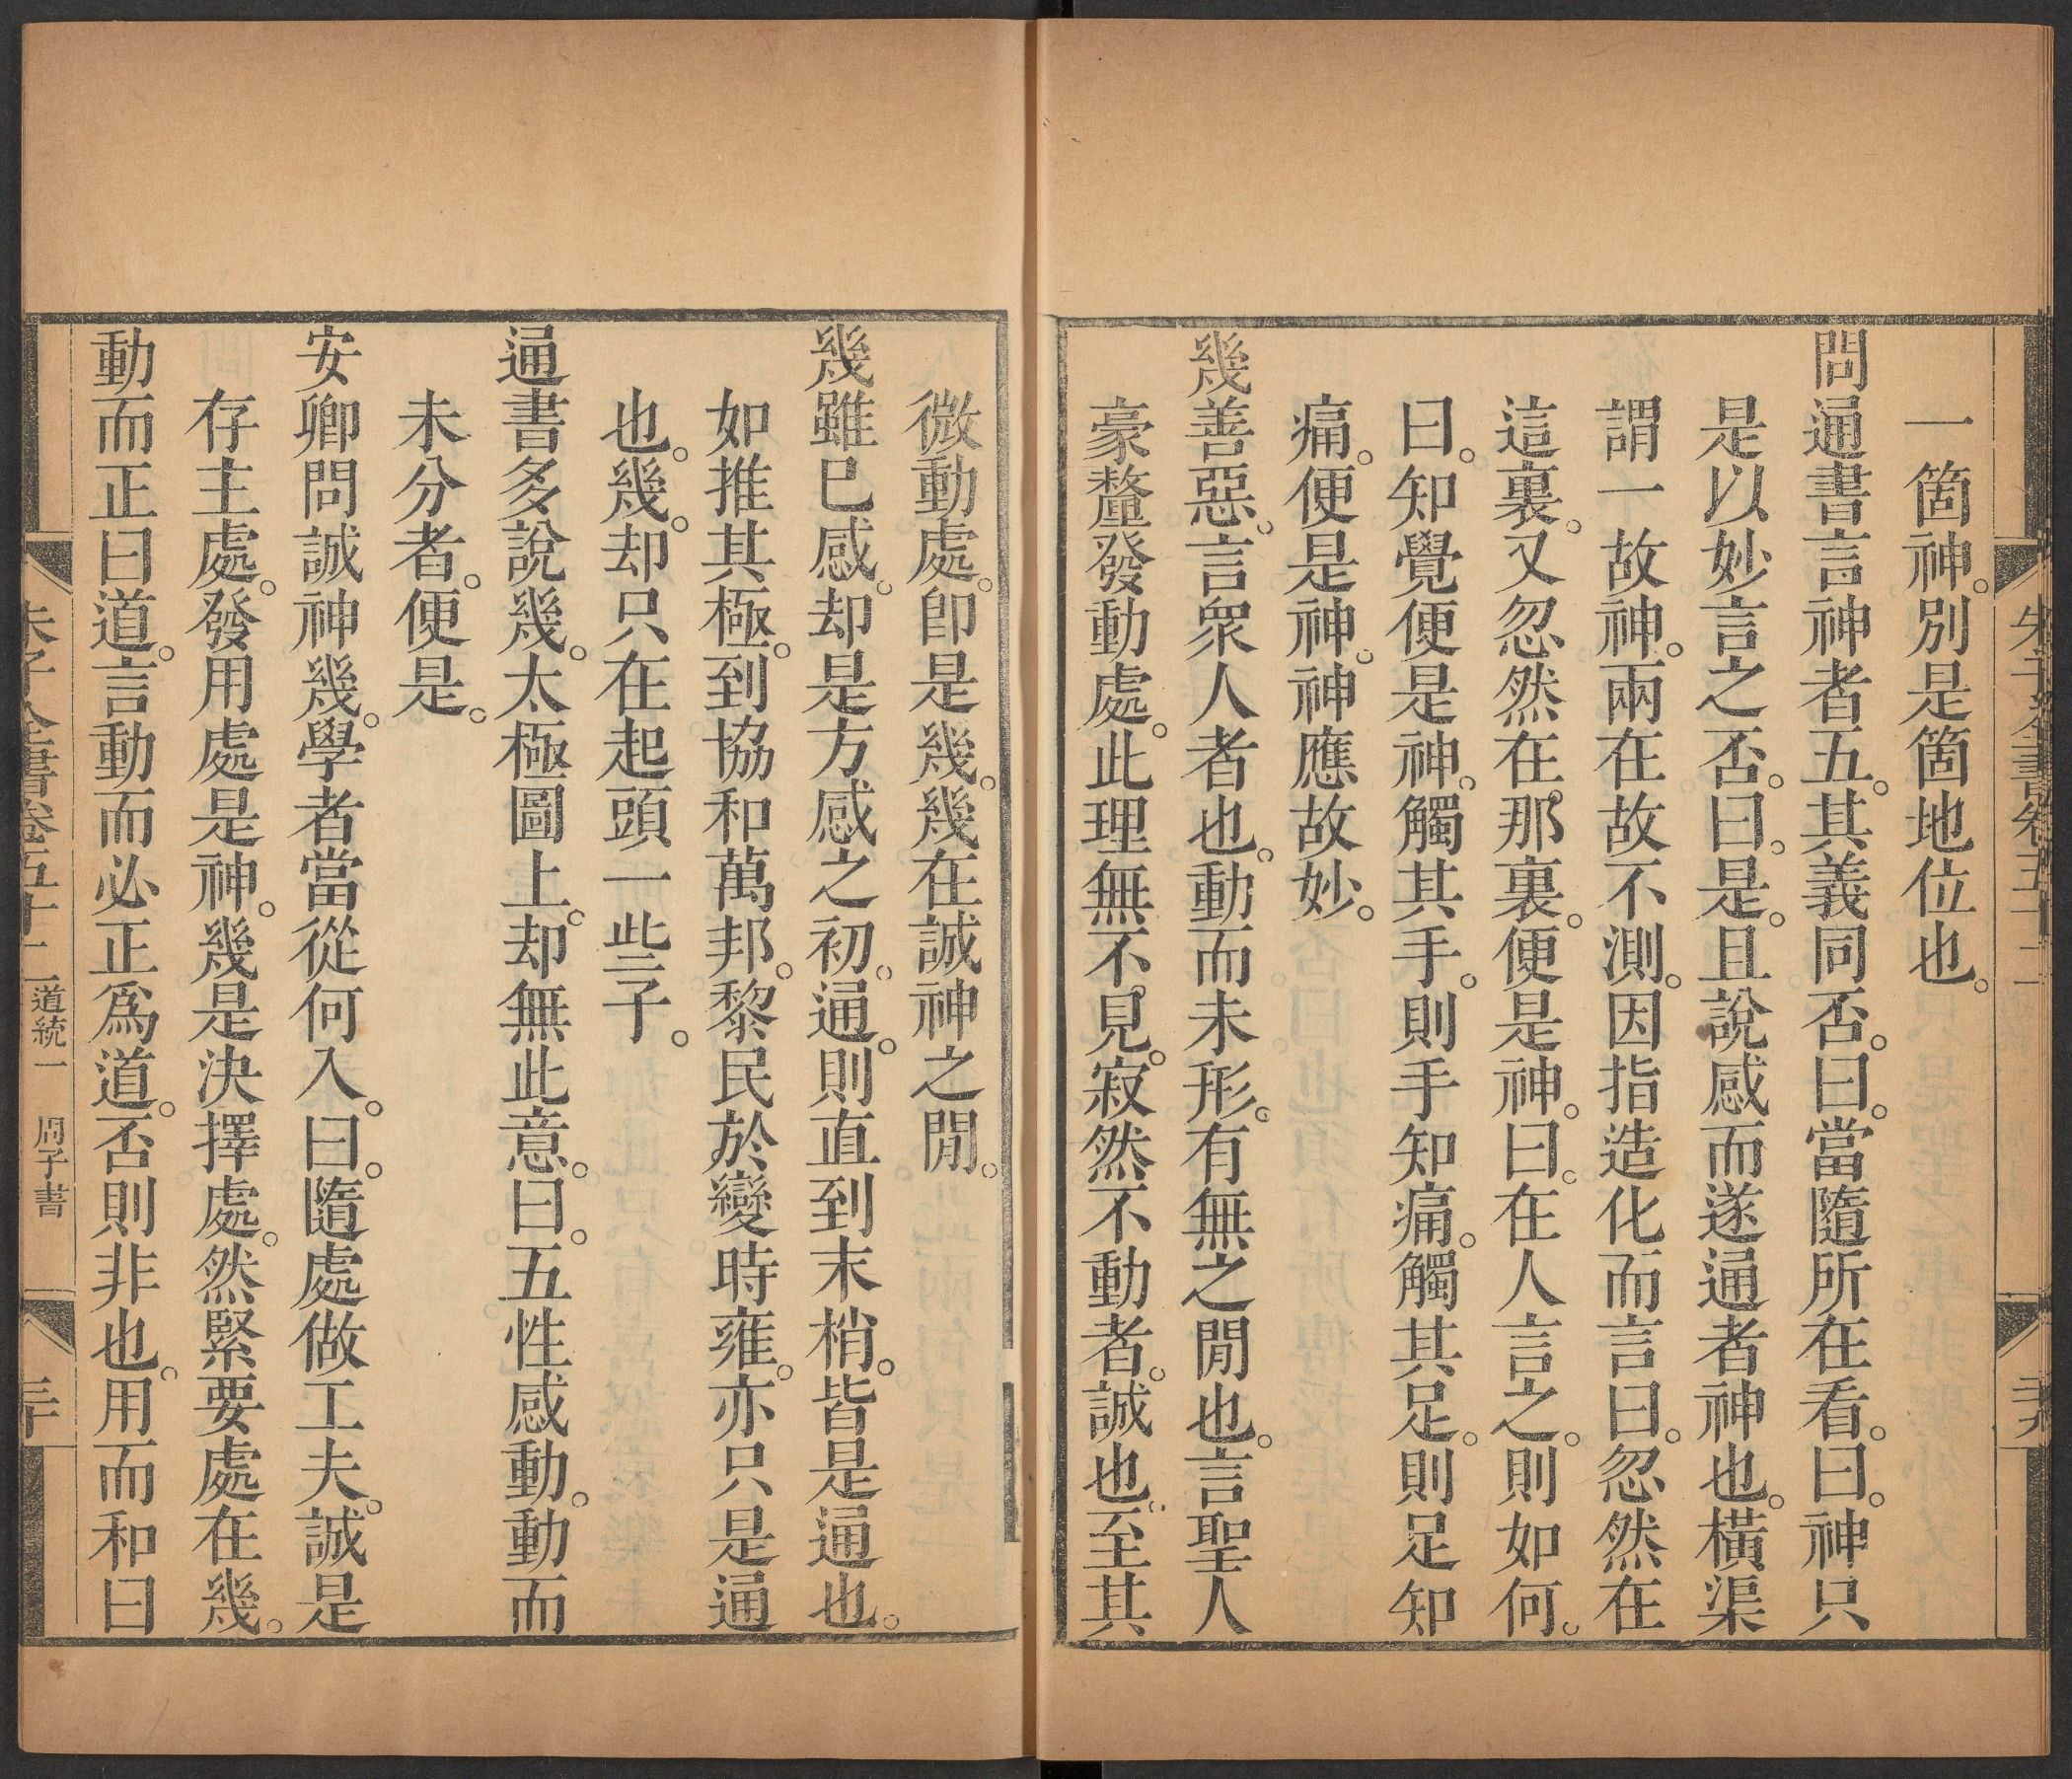 一箇神。別是箇地位也。
問通書言神者五。其義同否。曰。當隨所在看。曰。神只
是以妙言之否。曰。是。且說感而遂通者神也。橫渠
謂一故神。兩在故不測。因指造化而言曰。忽然在
這裏。又忽然在那裏。便是神。曰。在人言之。則如何。
曰。知覺便是神。觸其手。則手知痛。觸其足。則足知
痛。便是神。神應故妙。
幾善惡。言眾人者也。動而未形。有無之閒也。言聖人
豪釐發動處。此理無不見。寂然不動者。誠也。至其
微動處。卽是幾。幾在誠神之閒。
幾雖已感。却是方感之初。通。則直到末梢。皆是通也。
如推其極。到協和萬邦。黎民於變時雍。亦只是通
也。幾。却只在起頭一些子。
通書多說幾。太極圖上。却無此意。曰。五性感動。動而
未分者。便是。
安卿問誠神幾。學者當從何入。曰。隨處做工夫。誠是
存主處。發用處是神。幾是決擇處。然緊要處在幾。
動而正曰道。言動而必正爲道。否則非也。用而和曰
朱子全書卷五十二 道統一 周子書 三十